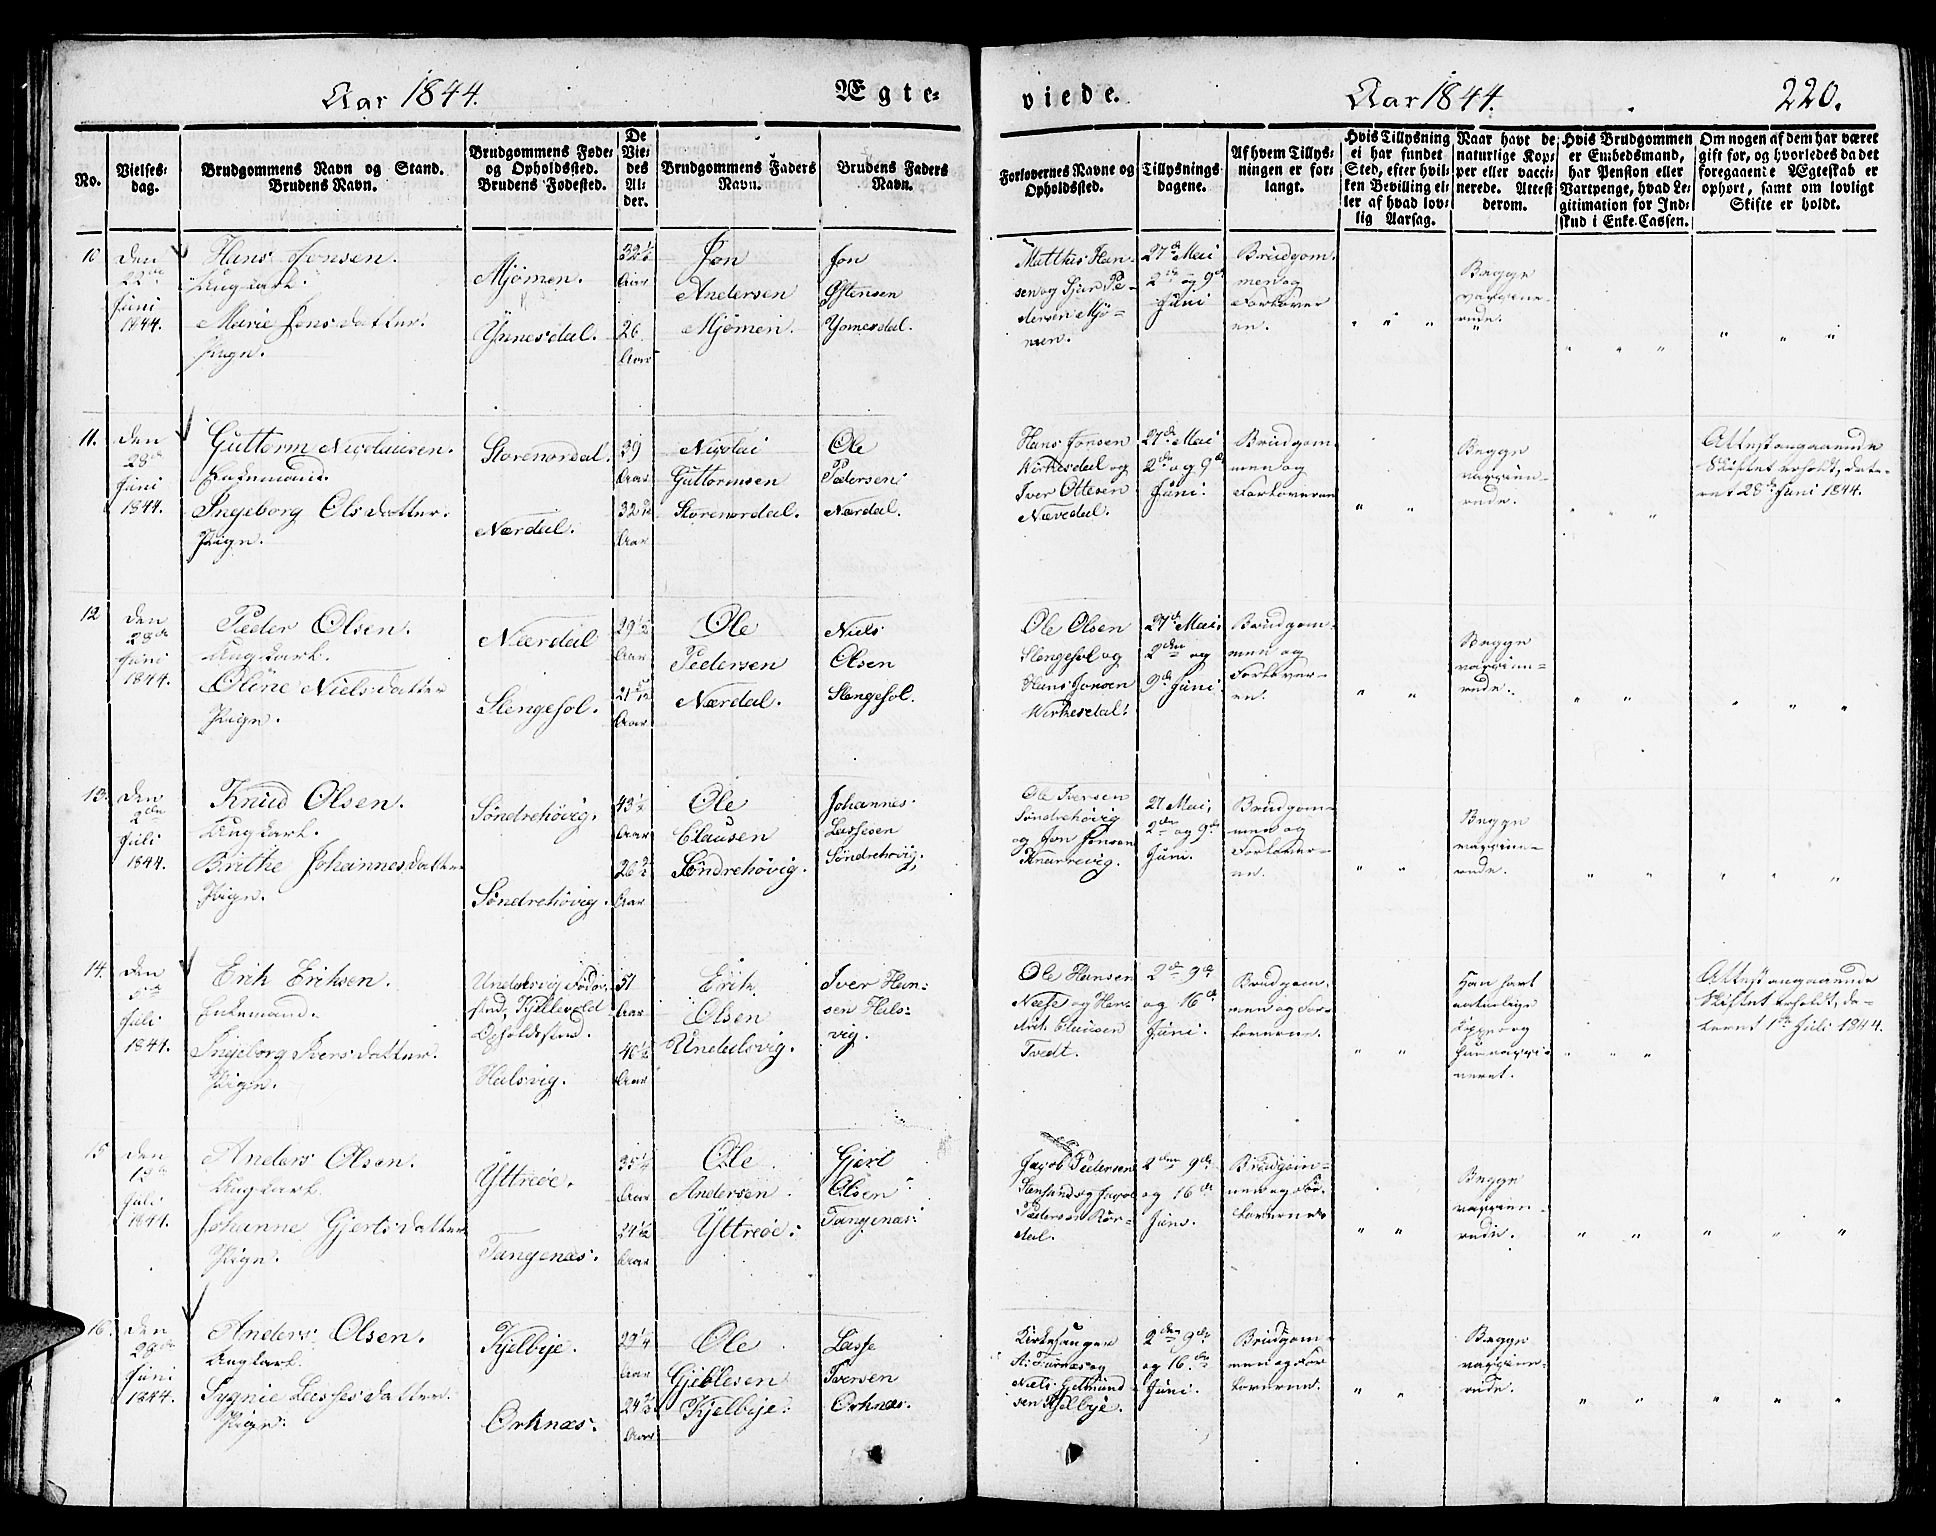 Aar 1844.
Ægte-
viede.
Aar 1844.
220.
No.
Vielses-
dag.
Brudgommens Navn og Stand.
Brudens Navn.
Brudgommens Føde-
og Opholdssted.
Brudens Fødested.
De
Vie-
des
Al-
der.
Brudgommens Faders
Navn.
Brudens Faders
Navn.
Forlovernes Navne og
Opholdssted.
Tillysnings-
dagene.
Af hvem Tillys-
ningen er for-
langt.
Hvis Tillysning
ei har fundet
Sted, efter hvil-
ken Bevilling el-
ler af hvad lov-
lig Aarsag.
Naar havt de
naturlige Kop-
per eller vacci-
nerede. Attest
derom.
Hvis Brudgommen
er Embedsmand,
har Pension eller
Vartpenge, hvad Le-
gitimation for Ind-
skud i Enke-Cassen.
Om nogen af dem har været
gift for, og hvorledes da det
foregaaende Ægteskab er
ophørt, samt om lovligt
Skifte er holdt.
10
den
22de
Juni
1844.
Hans Jonsen.
Ungkarl.
Marie Jonsdatter.
Pige.
Mjømen.
Ynnesdal.
32½
Aar
26
Aar
Jon
Andersen
Mjømen.
Jon
Østensen
Ynnesdal.
Matthis Han-
sen og Sjur Pe-
dersen Mjø-
men.
27de Mai
2de og 9de
Juni
Brudgom-
men og
Forlover
en.
Begge
vaccine-
rede.
11.
den
28de
Juni
1844.
Guttorm Nicolaisen.
Enkemand.
Ingeborg Olsdatter.
Pige.
Storenordal.
Nærdal.
39
Aar
32
Aar
Nicolai
Guttormsen
Storenordal.
Ole
Pedersen
Nærdal.
Hans Jonsen
Kirkesdal og
Iver Ottesen
Nævedal.
27de Mai
2de og 9de
Juni.
Brudgom-
men og
Forloveren
Begge
vaccine-
rede.
Attest angaaende
Skiftet erholdt, date-
ret 28de Juni 1844.
12
den
28de
Juni
1844.
Peder Olsen.
Ungkarl.
Oline Nielsdatter
Pige.
Nærdal
Slengesol.
29½
Aar
21
Aar
Ole
Pedersen
Nærdal.
Niels
Olsen
Slengesol.
Ole Olsen
Slengesol og
Hans Jonsen
Virkesdal.
27de Mai,
2den og
9de Juni.
Brudgom-
men og
Forlover-
en.
Begge
vaccine-
rede.
13.
den
2den
Juli
1844.
Knud Olsen.
Ungkarl.
Brithe Johannesdatter
Pige.
Søndrehövig.
Søndrehövig.
43½
Aar
26½
Aar
Ole
Clausen
Søndrehövig.
Johannes
Lassesen
Søndrehövig,
Ole Iversen
Søndrehövig
og Jon Jonsen
Knarrevig.
27 Mai,
2den og 9de
Juni.
Brudgom-
men og
Forlover-
en.
Begge
vaccine-
rede.
14.
den
5te
Juli
1844.
Erik Eriksen.
Enkemand.
Ingeborg Iversdatter.
Pige.
Undelsvig Føde-
sted, Kjellevold
Opholdssted.
Halsvig.
51
Aar
40½
Aar
Erik
Olsen
Undalsvig.
Iver Han-
sen Hals-
vig.
Ole Hansen
Neese og Hen-
drik Clausen
Tvedt.
2de 9de
og 16de
Juni.
Brudgom-
men og For-
loverne.
Han havt
naturlige
Kopper og
hun vacci-
neret.
Attest angaaende
Skiftet erholdt, da-
teret 1ste Juli 1844.
15
den
Juli
1844.
Anders Olsen.
Ungkarl.
Johanne Gjertsdatter
Pige.
Yttreøe.
Tangenæs.
35¼
Aar
24½
Aar
Ole
Andersen
Yttreøe.
Gjert
Olsen
Tangenæs.
Jacob Pedersen
Pedersen
dal.
2den 9de
og 16de
Juni.
Brudgom-
men og For-
loverne
Begge
vaccine-
rede.
16.
den
28de
Juni
1844.
Anders Olsen.
Ungkarl.
Sygnie Lassesdatter.
Pige.
Kjelbye.
Orknæs.
29¼
Aar
24½
Aar
Ole
Gjeblesen
Kjelbye.
Lasse
Iversen
Orknæs.
Kirkesanger
A. Furnæs og
Niels Gjelmund
sen Kjelbye.
2den 9de
og 16de
Juni.
Brudgom-
men og For
loverne.
Begge
vaccine-
rede.